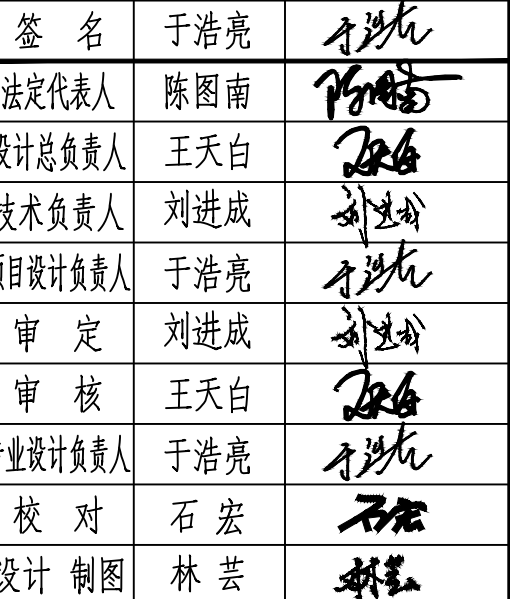 签 名 于浩亮 于浩亮
法定代表人 陈图南 陈图南
设计总负责人 王天白 王天白
技术负责人 刘进成 刘进成
项目设计负责人 于浩亮 于浩亮
审 定 刘进成 刘进成
审 核 王天白 王天白
专业设计负责人 于浩亮 于浩亮
校 对 石 宏 石宏
设计 制图 林 芸 林芸